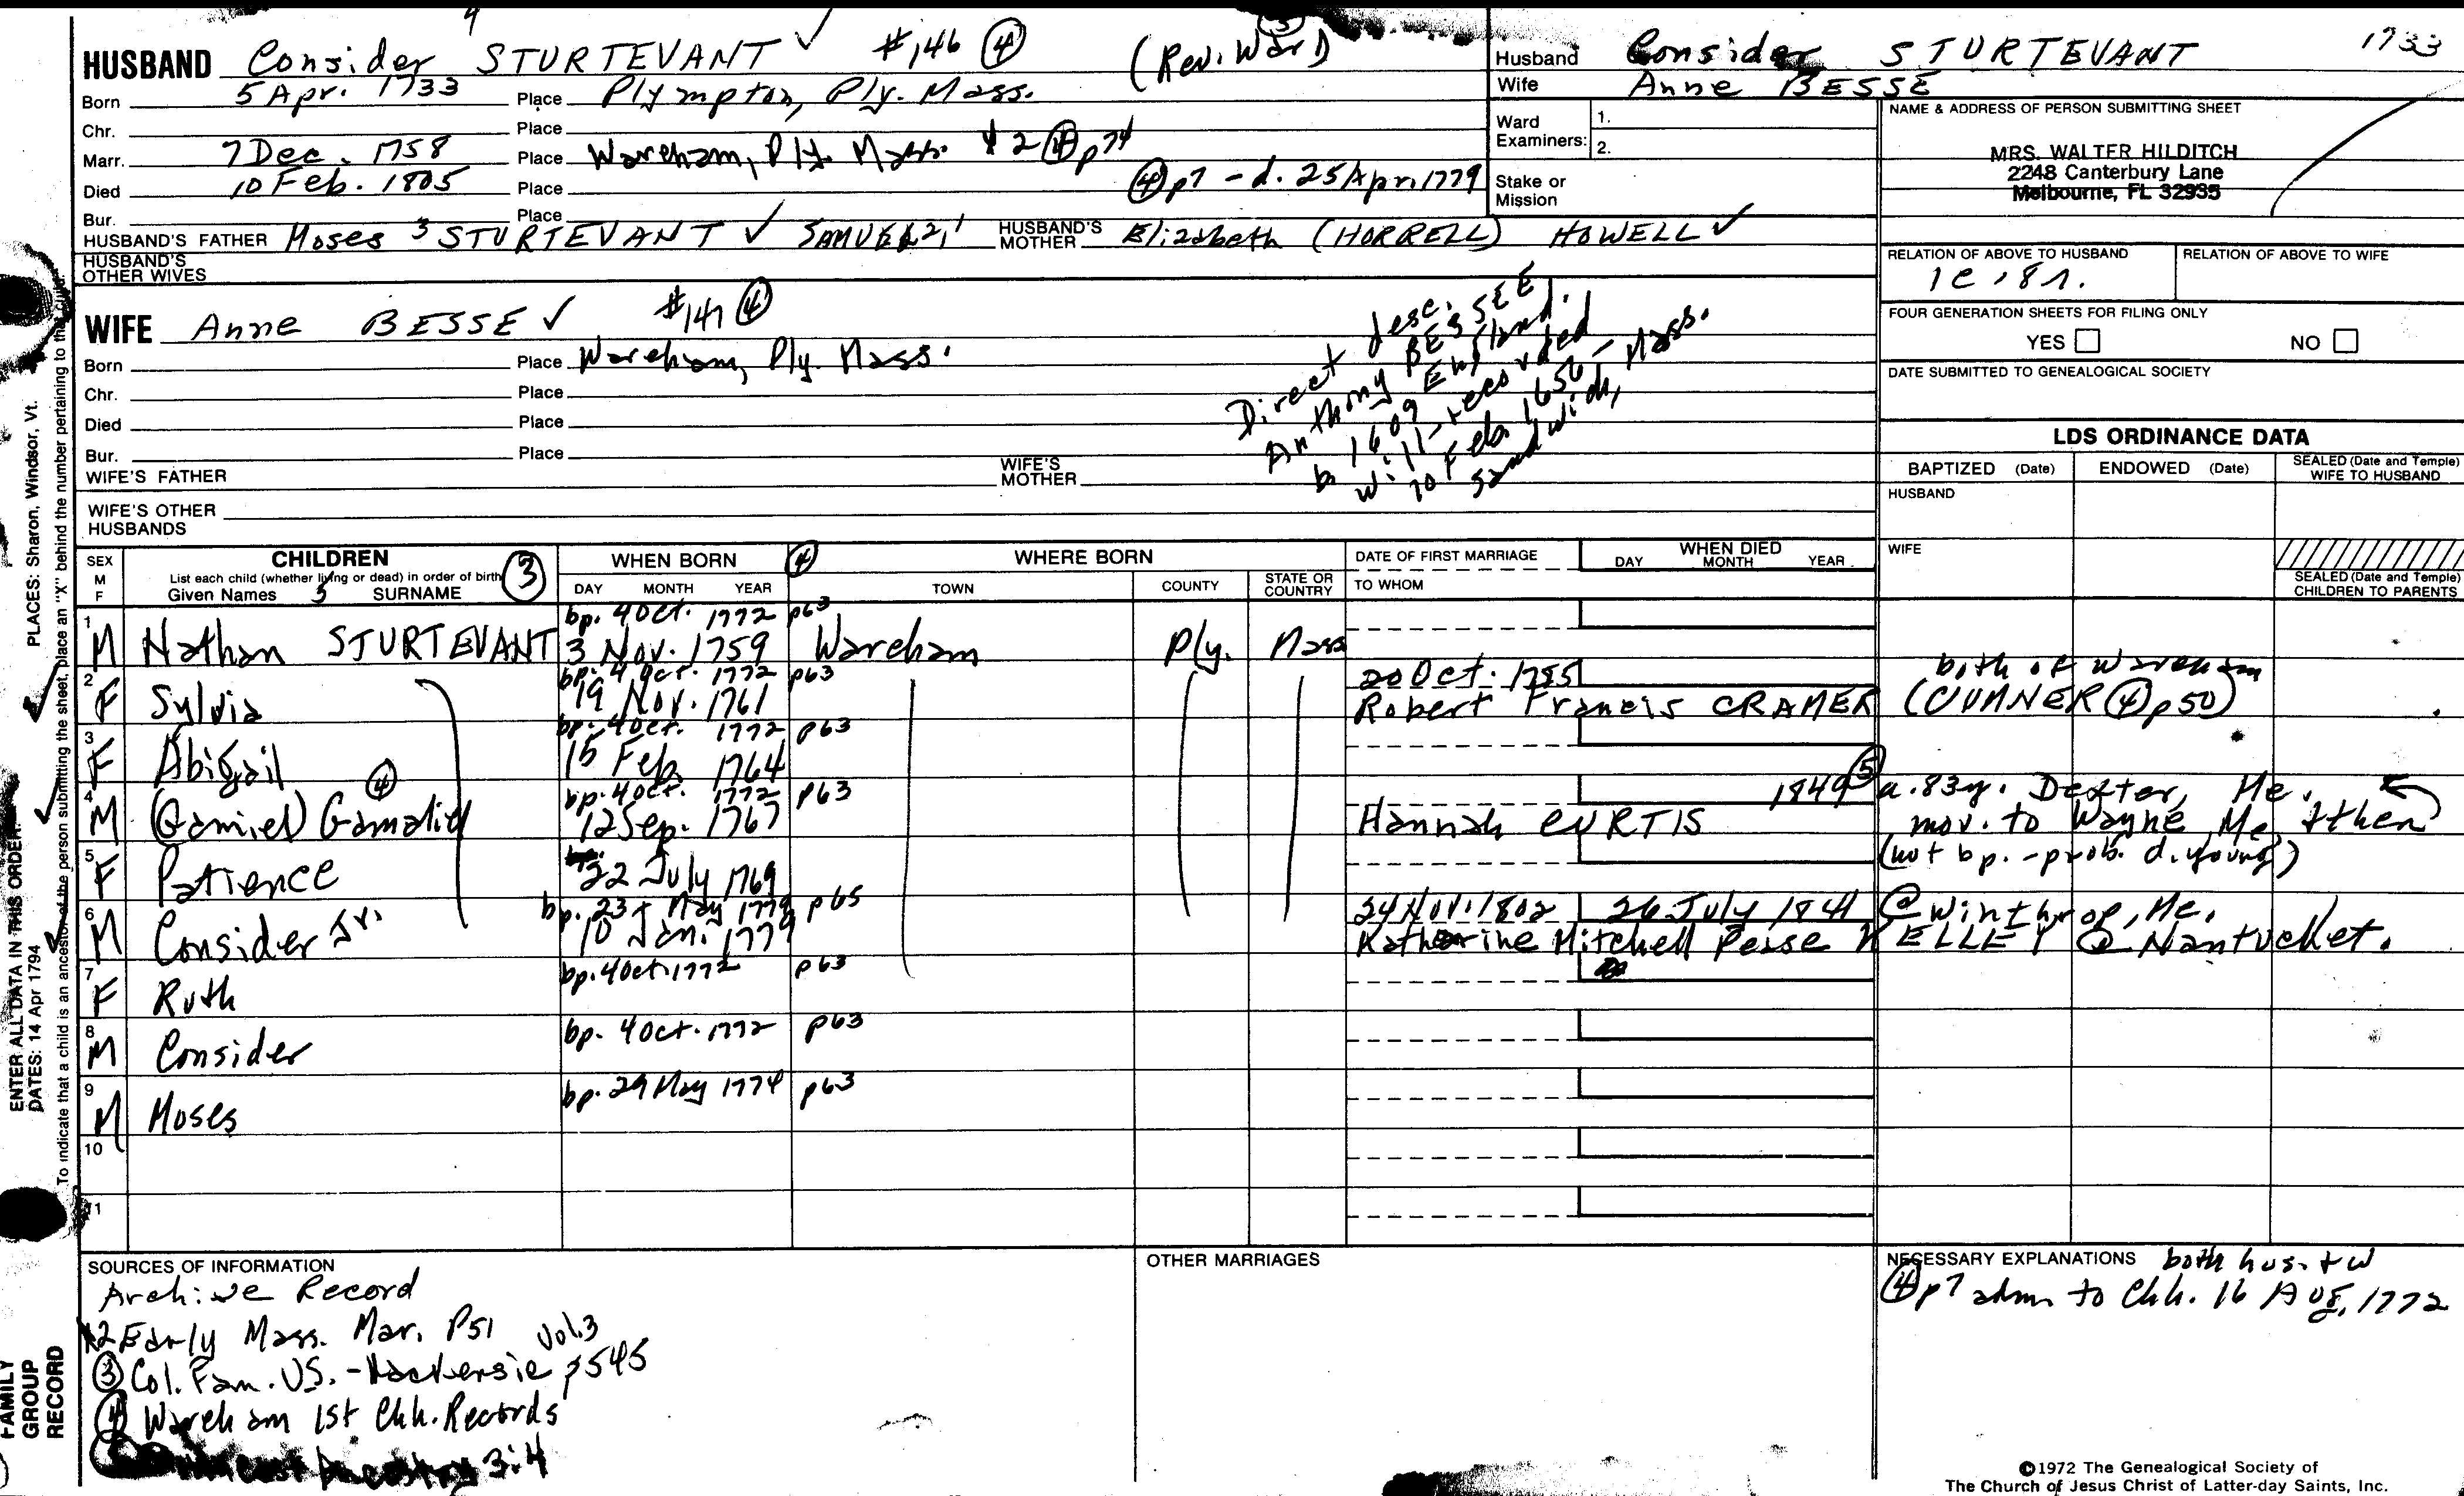 4
HUSBAND Consider STURTEVANT ✓ #146 ④ (Rev. War)
Born 5 Apr. 1733 Place Plympton, Ply. Mass.
Chr. Place
Marr. 7 Dec. 1758 Place Wareham, Ply. Mass. #2 ④ p74
Died 10 Feb. 1805 Place ④ p7 - d. 25 Apr. 1779
Bur. Place
HUSBAND'S FATHER Moses 3 STURTEVANT ✓ SAMUEL 2,1 HUSBAND'S MOTHER Elizabeth (HORRELL) HOWELL ✓
HUSBAND'S OTHER WIVES
WIFE Anne BESSE ✓ #147 ④
Born Place Wareham, Ply. Mass.
Chr. Place
Died Place
Bur. Place
WIFE'S FATHER WIFE'S MOTHER
WIFE'S OTHER HUSBANDS
Direct desc.
Anthony BESSEE
b 1609 England.
Will-recorded
10 Feb. 1656-
Sandwich, Mass.
Husband Consider STURTEVANT 1733
Wife Anne BESSE
Ward Examiners: 1.
2.
Stake or Mission
NAME & ADDRESS OF PERSON SUBMITTING SHEET
MRS. WALTER HILDITCH
2248 Canterbury Lane
Melbourne, FL 32935
RELATION OF ABOVE TO HUSBAND RELATION OF ABOVE TO WIFE
1c,8r.
FOUR GENERATION SHEETS FOR FILING ONLY
YES NO
DATE SUBMITTED TO GENEALOGICAL SOCIETY
LDS ORDINANCE DATA
BAPTIZED (Date) ENDOWED (Date) SEALED (Date and Temple) WIFE TO HUSBAND
HUSBAND
WIFE
SEALED (Date and Temple) CHILDREN TO PARENTS
SEX M F CHILDREN ③ WHEN BORN ④ WHERE BORN DATE OF FIRST MARRIAGE WHEN DIED
List each child (whether living or dead) in order of birth
Given Names 5 SURNAME DAY MONTH YEAR TOWN COUNTY STATE OR COUNTRY TO WHOM DAY MONTH YEAR
bp. 4 Oct. 1772 p63
1 M Nathan STURTEVANT 3 Nov. 1759 Wareham Ply. Mass
bp. 4 Oct. 1772 p63 20 Oct. 1785 both of Wareham
2 F Sylvia 19 Nov. 1761 Robert Francis CRAMER (CUMNER ④ p50)
bp. 4 Oct. 1772 p63
3 F Abigail 15 Feb. 1764
bp. 4 Oct. 1772 p63 1849 ⑤ a. 83y. Dexter, Me.
4 M (Gamiel) Gamaliel ④ 12 Sep. 1767 Hannah CURTIS mov. to Wayne, Me, then
5 F Patience 22 July 1769 (not bp. - prob. d. young)
bp. 23 May 1779 p65 24 Nov. 1802 26 July 1841 @ Winthrop, Me.
6 M Consider Jr. 10 Jan. 1779 Katherine Mitchell Pease KELLEY @ Nantucket.
7 F Ruth bp. 4 Oct 1772 p63
8 M Consider bp. 4 Oct. 1772 p63
9 M Moses bp. 29 May 1774 p63
10
11
SOURCES OF INFORMATION
Archive Record
#2 Early Mass. Mar. P51 Vol.3
③ Col. Fam. US. - Mackensie p545
④ Wareham 1st Chh. Records
Ancestry 3:4
OTHER MARRIAGES
NECESSARY EXPLANATIONS both hus. + w
④ p7 adm. to Chh. 16 Aug. 1772
©1972 The Genealogical Society of
The Church of Jesus Christ of Latter-day Saints, Inc.
ENTER ALL DATA IN THIS ORDER:
DATES: 14 Apr 1794 PLACES: Sharon, Windsor, Vt.
To indicate that a child is an ancestor of the person submitting the sheet, place an "X" behind the number pertaining to that child.
FAMILY
GROUP
RECORD